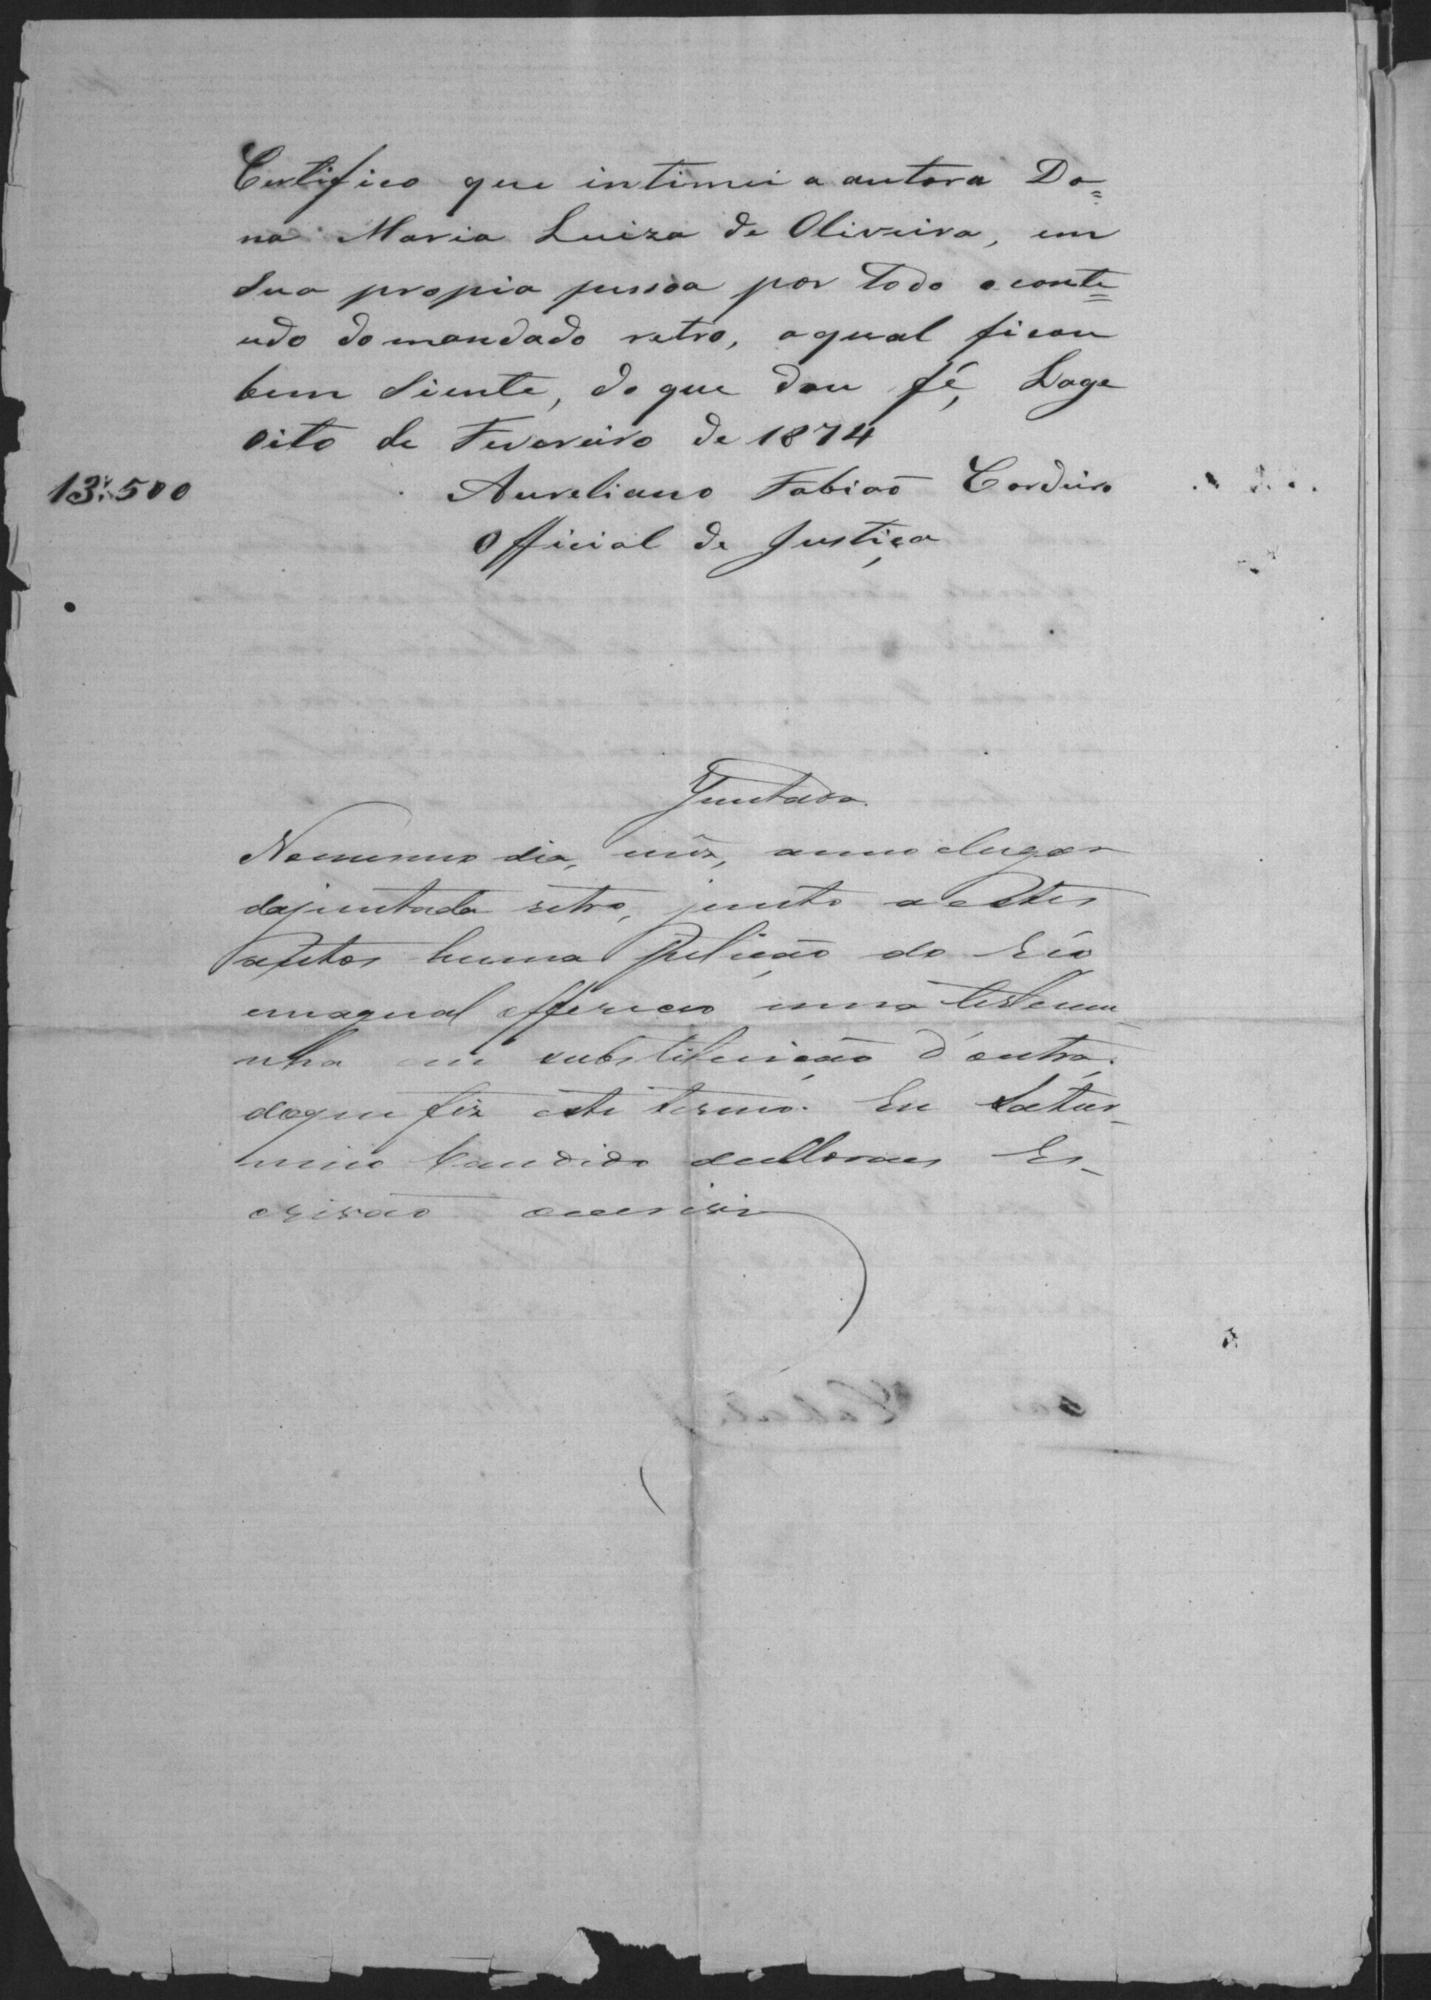 Certifico que intimei a autora Do=
na Maria Luiza de Oliveira, em
Sua propia pessoa por todo o conte=
udo do mandado retro, aqual ficou
bem Siente, do que dou fé, Lage
oito de Fevereiro de 1874
13$500
Aureliano Fabiaõ Cordeiro
Official de Justiça
Juntada.
No mesmo dia, mêz, anno elugar
dajuntada retro, junto aestes
autos huma petição do Réo
emaqual offereceo uma testemu-
nha em substituição d'outra.
doque fiz este termo. Eu Satur-
nino Candido de Moraes Es-
crivão oescrivi